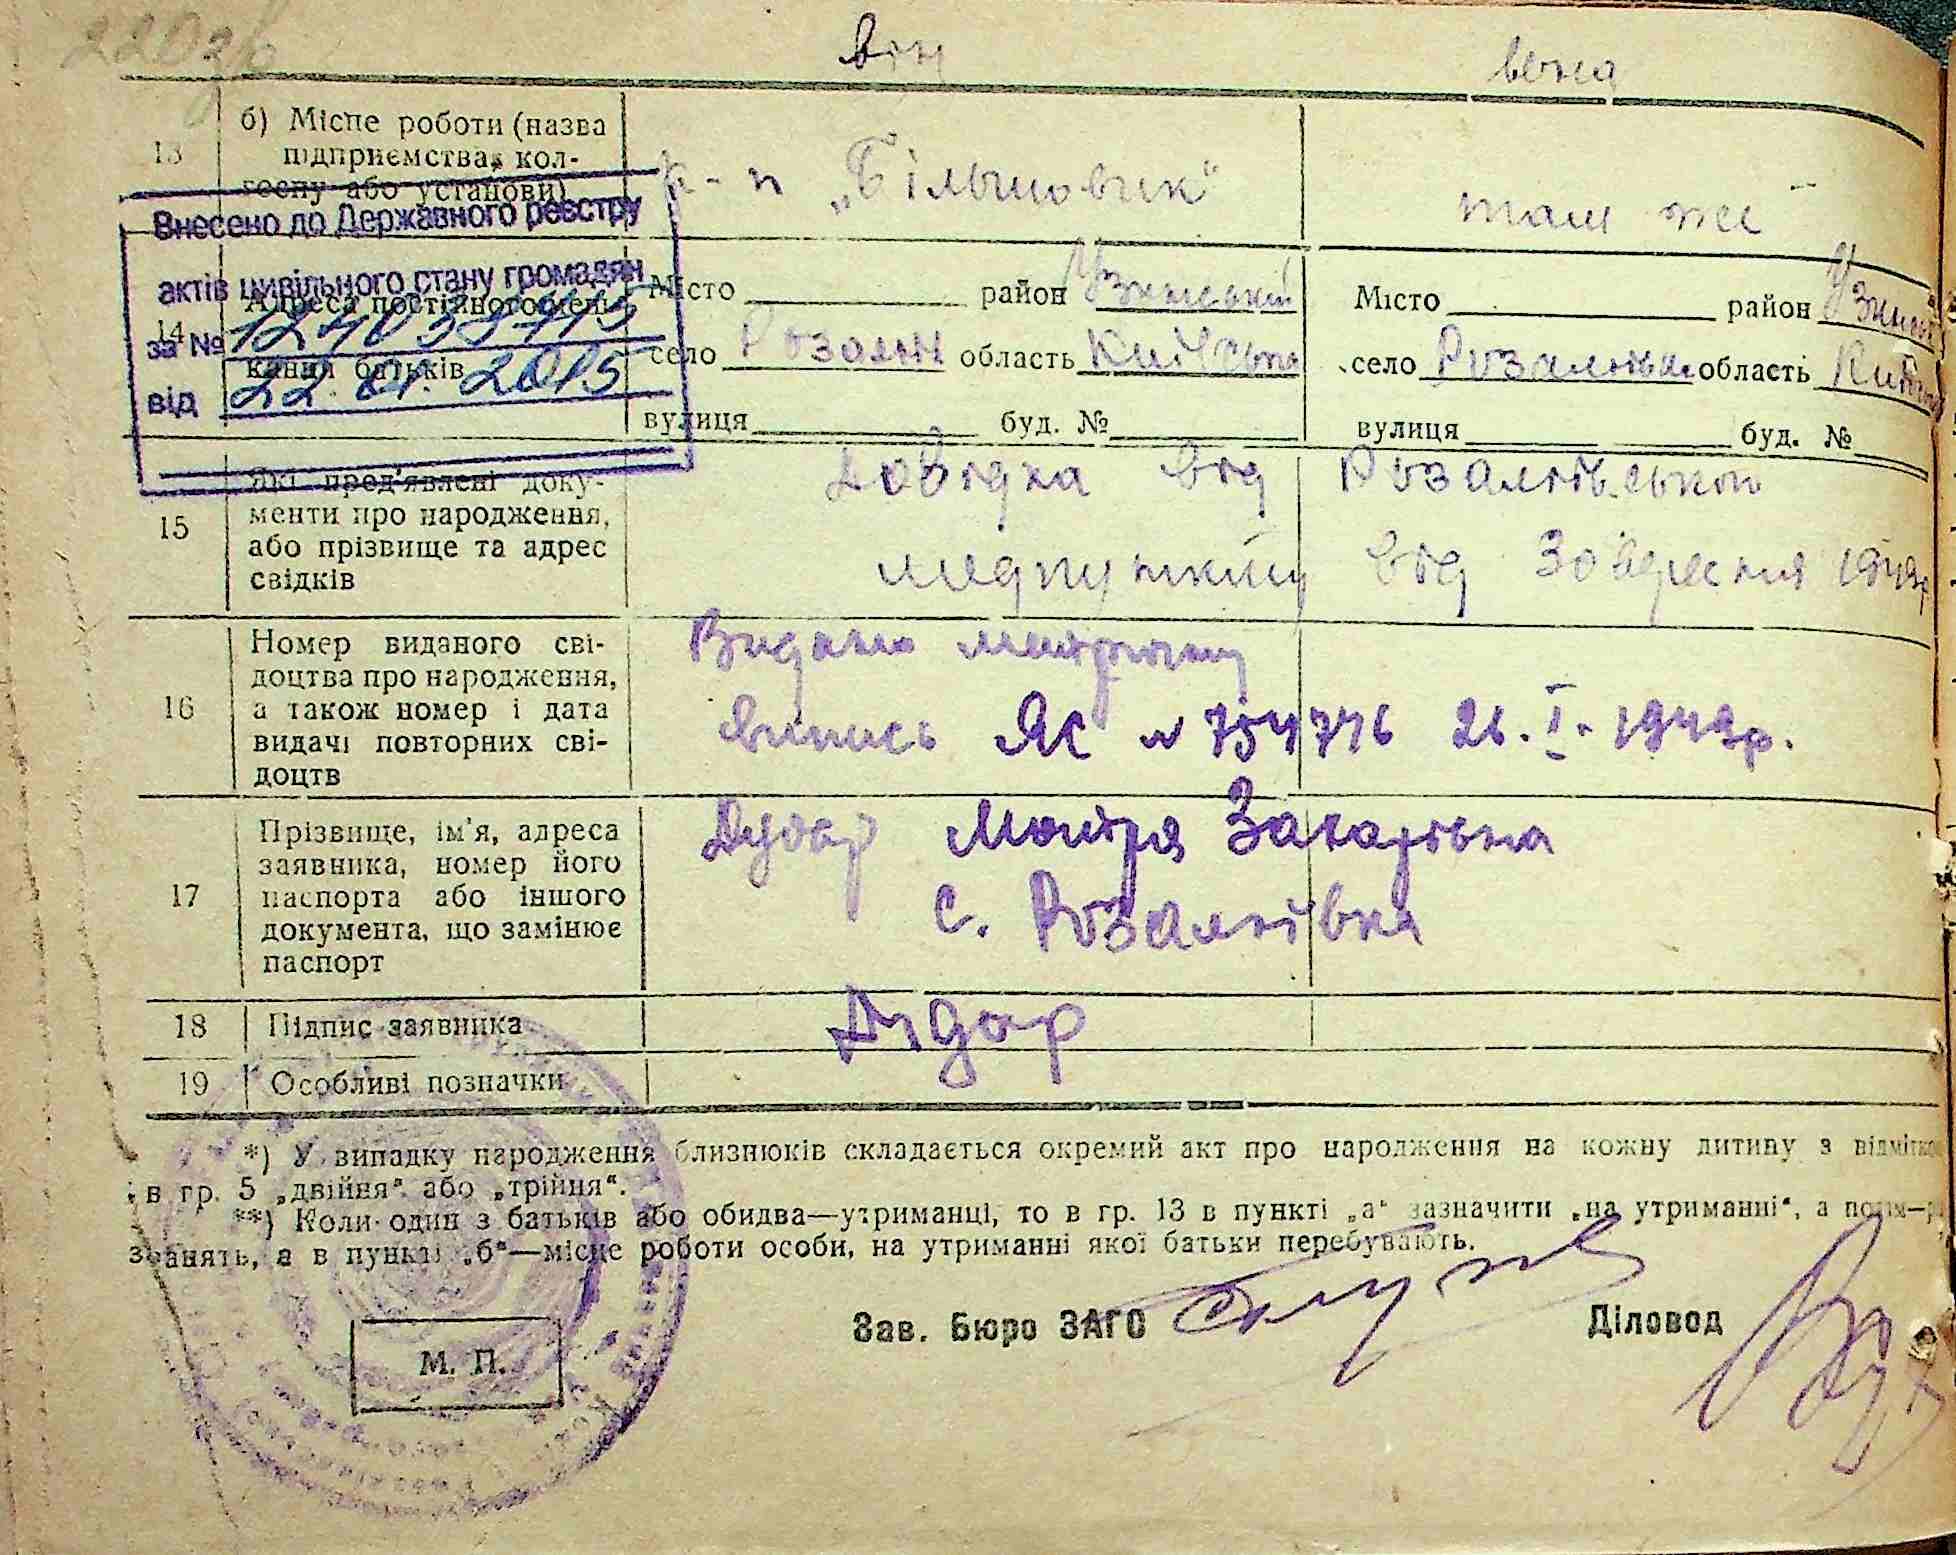 220зв
він
вона
13
б) Місце роботи (назва
підприємства, кол-
госпу або установи)
к-п „Більшовик“
там же
Внесено до Державного реєстру
актів цивільного стану громадян
за №
від 22. 01. 2015
14
Адреса постійного меш-
кання батьків
Місто район Узинський
село Розалії область Київська
вулиця буд. №
Місто район Узинськ
село Розаліївка область Київськ
вулиця буд. №
15
Які пред'явлені доку-
менти про народження,
або прізвище та адрес
свідків
Довідка від Розаліївського
медпункту від 30 вересня 1948р
16
Номер виданого сві-
доцтва про народження,
а також номер і дата
видачі повторних сві-
доцтв
Видано метричну
випись ЯС № 754776 26. I. 1949р.
17
Прізвище, ім'я, адреса
заявника, номер його
паспорта або іншого
документа, що замінює
паспорт
Дудар Мотря Захарівна
с. Розаліївка
18
Підпис заявника
Дудар
19
Особливі позначки
*) У випадку народження близнюків складається окремий акт про народження на кожну дитину з відмітко
в гр. 5 „двійня“ або „трійня“.
**) Коли один з батьків або обидва—утриманці, то в гр. 13 в пункті „а“ зазначити „на утриманні“, а потім—р
занять, а в пункті „б“—місце роботи особи, на утриманні якої батьки перебувають.
Зав. Бюро ЗАГС
Діловод
М. П.